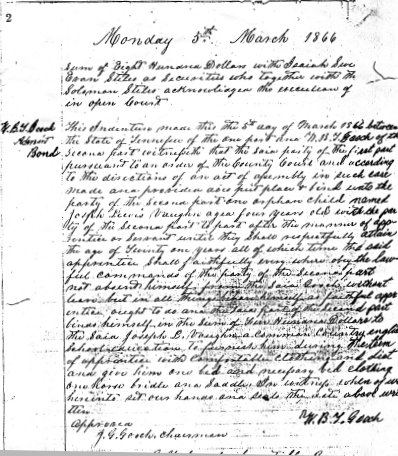 2
Monday 5th March 1866
Sum of Eight Hundred Dollars with Isaiah
Evan Stiles as Securities who together with the
Solomon Stiles acknowledged the execution of
in open Court
W.B.T. Gooch
Bond
This Indenture made this the 5th day of March 1866 between
the State of Tennessee of the one part and W.B.T. Gooch of the
Second part witnesseth that the said party of the first part
pursuant to an order of the County Court and according
to the directions of an act of assembly in such case
made and provided does put place & bind unto the
party of the Second part one orphan child named
Joseph Lewis Vaughn aged four years old with the par
ty of the Second part to part after the manner of appr
entice or Servant until they Shall respectfully attain
the age of Twenty one years all of which time the said
apprentice Shall faithfully every where obey the law
ful Commands of the party of the Second part
not absent himself from the Said Gooch without
leave but in all things behave himself as faithful appr
entice ought to do and the said party of the Second part
binds himself in the Sum of Five Hundred Dollars to
the Said Joseph L. Vaughn a Common Country english
education to furnish him during the term
of apprentice with Comfortable clothing and diet
and give him one bed and necessary bed clothing
one horse bridle and Saddle In witness where of we
hereinto Set our hands and Seals the date above wri
tten
W.B.T. Gooch
Approved
J.G. Gooch, Chairman